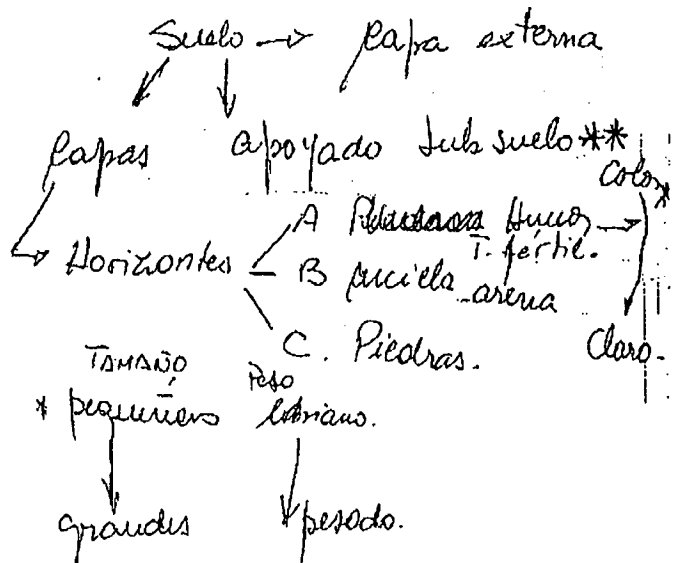 Suelo → Capa externa
Capas apoyado Subsuelo **
Color *
A Humus →
T. fértil.
Horizontes B arcilla arena
C. Piedras. Claro.
TAMAÑO Peso
* pequeñas liviano.
grandes pesado.